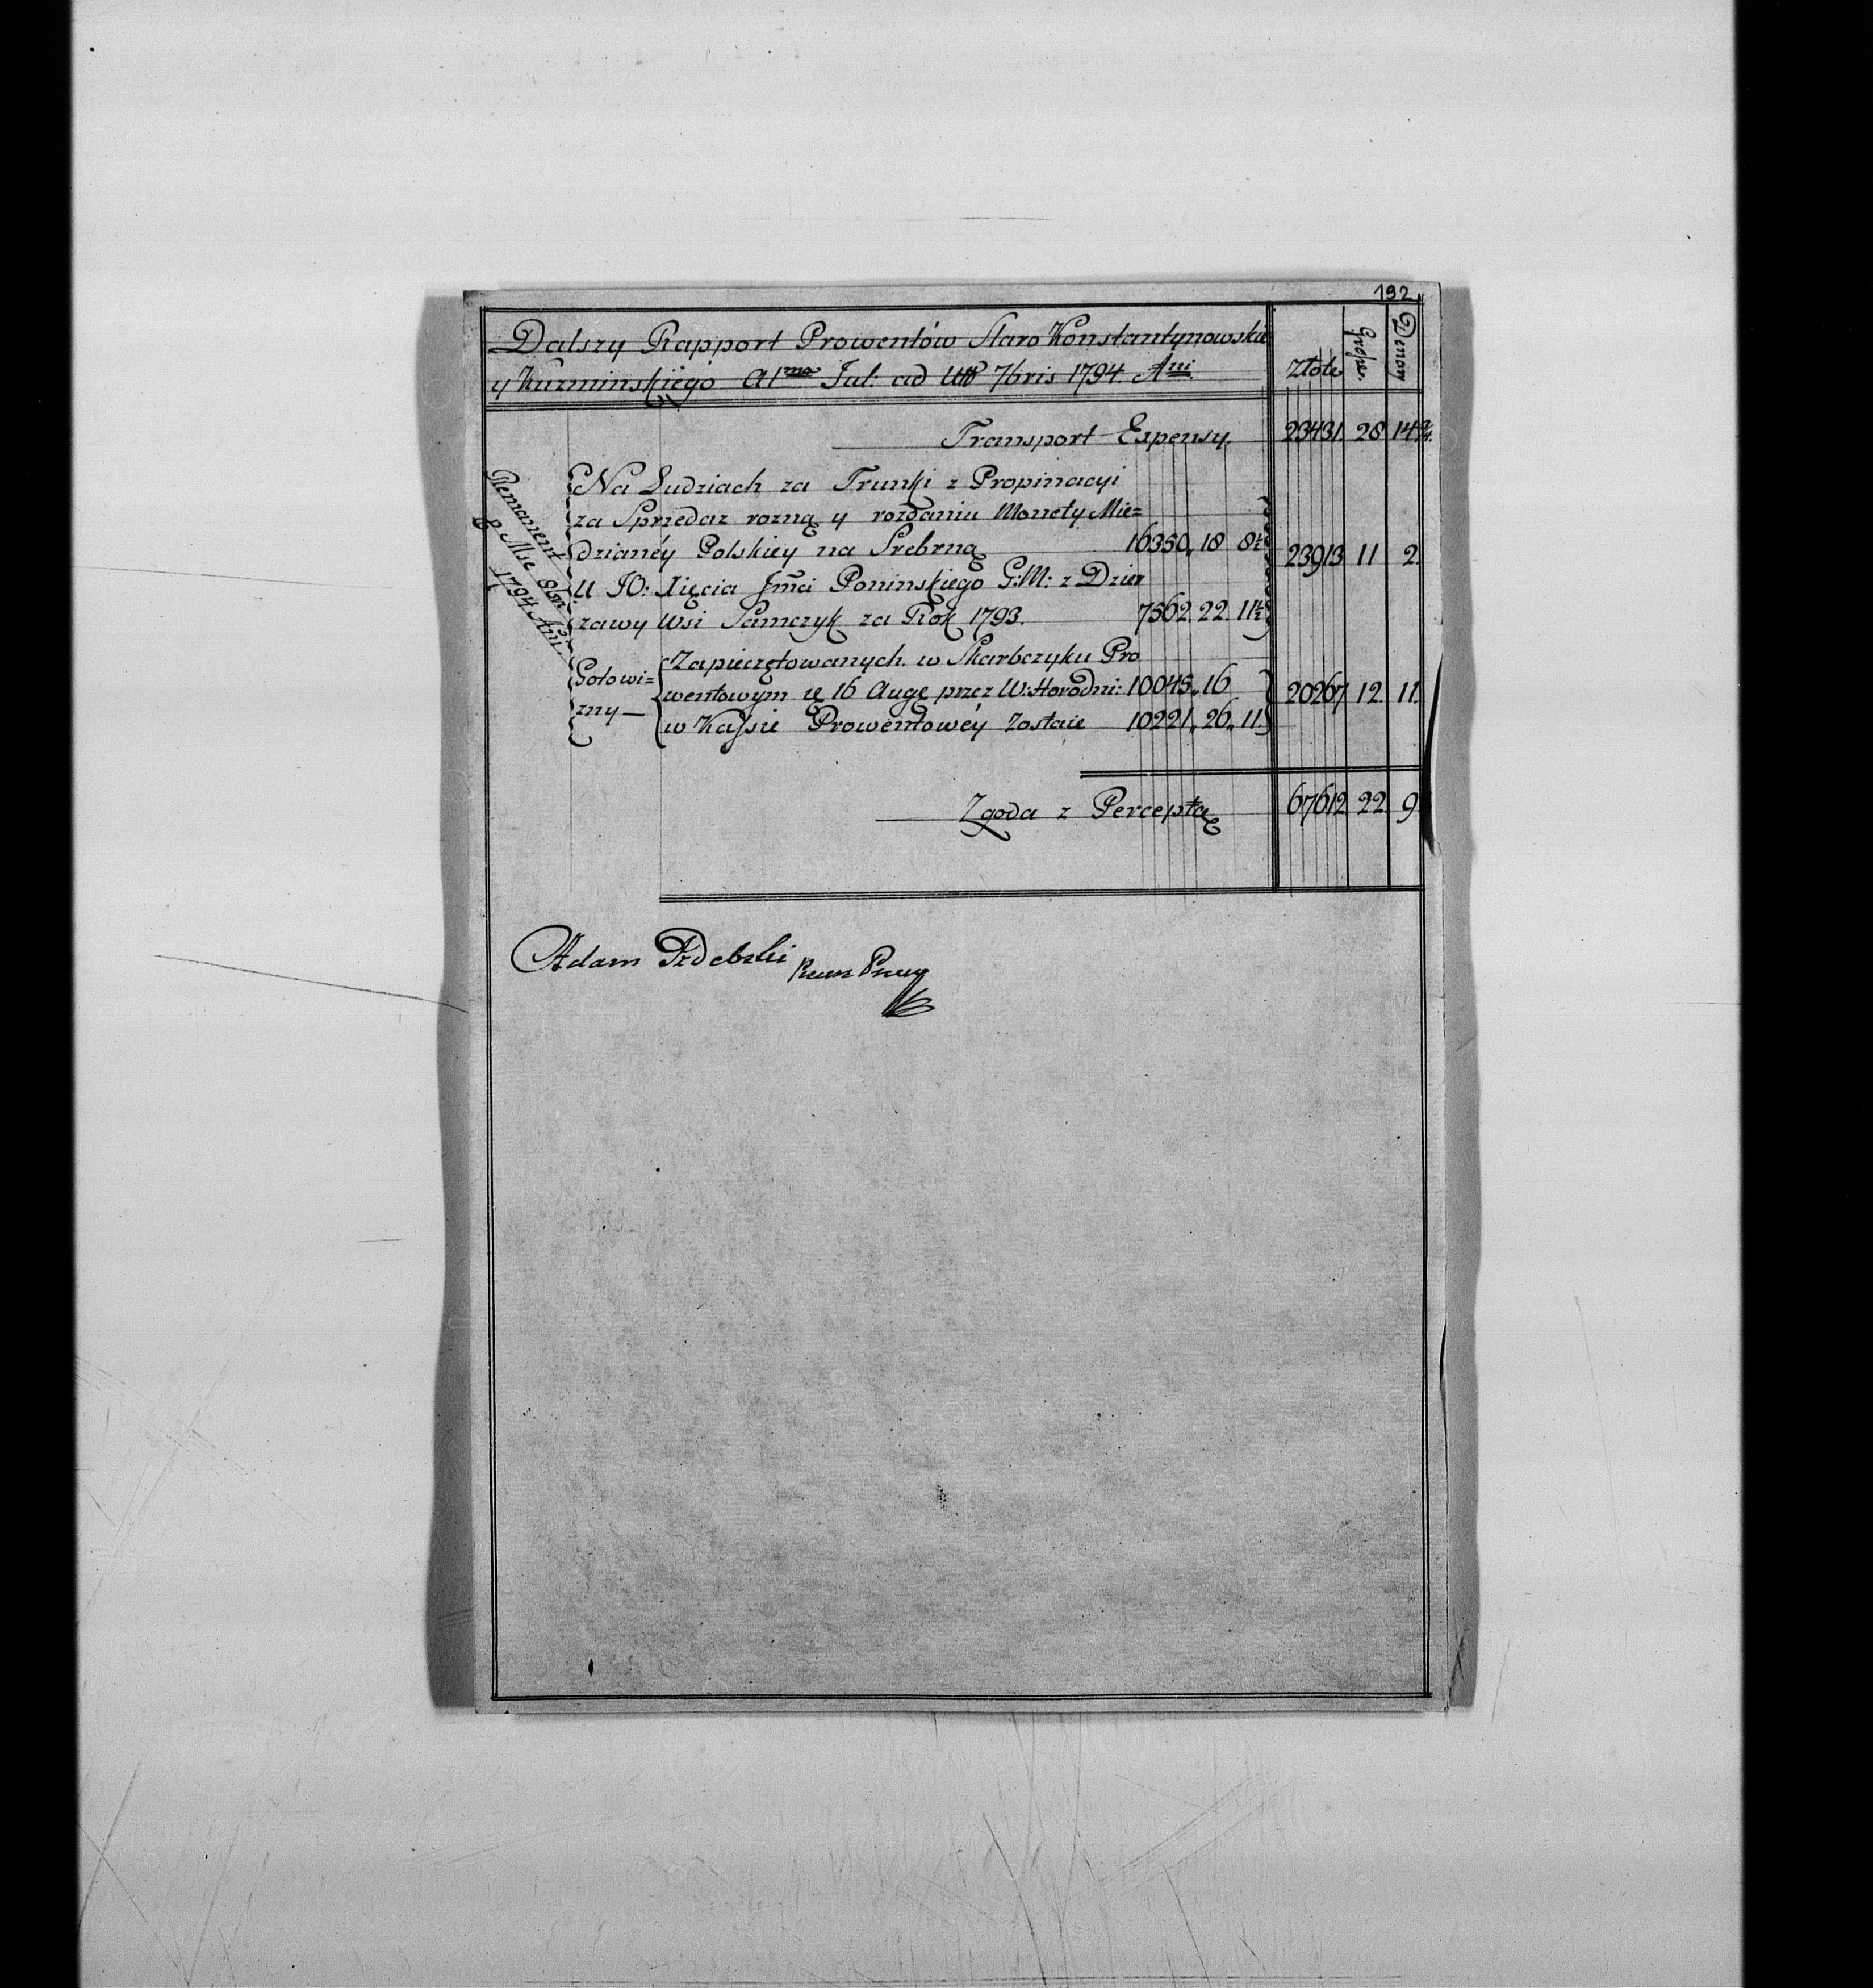 192
Dalszy Rapport Prowentów Staro Konstantynowskie
y Kuzminskiego a 1ma Jul: ad Ult 7bris 1794. Ani.
Złote Grosze. Denary
Transport Expensy. 23431 28 14 2/4.
Remanent
8bri
1794 Ani
Na Ludziach za Trunki z Propinacyi
za Sprzedaz rozną y rozdaniu Monety Mie=
dzianéy Polskiey na Srebrną 16350,, 18 8½ 23913 11 2.
U JO: Xięcia Jmci Poninskiego G:M: z Dzier
zawy Wsi Samczyk za Rok 1793. 7562. 22. 11½
Gotowi=
zny —
Zapieczętowanych w Skarbczyku Pro
wentowym 16 Aug przez W: Horodni: 10045,, 16 20267 12. 11.
w Kassie Prowentowéy zostaie 10221,, 26,, 11.
Zgoda z Perceptą 67612 22 9.
Adam Izdebski